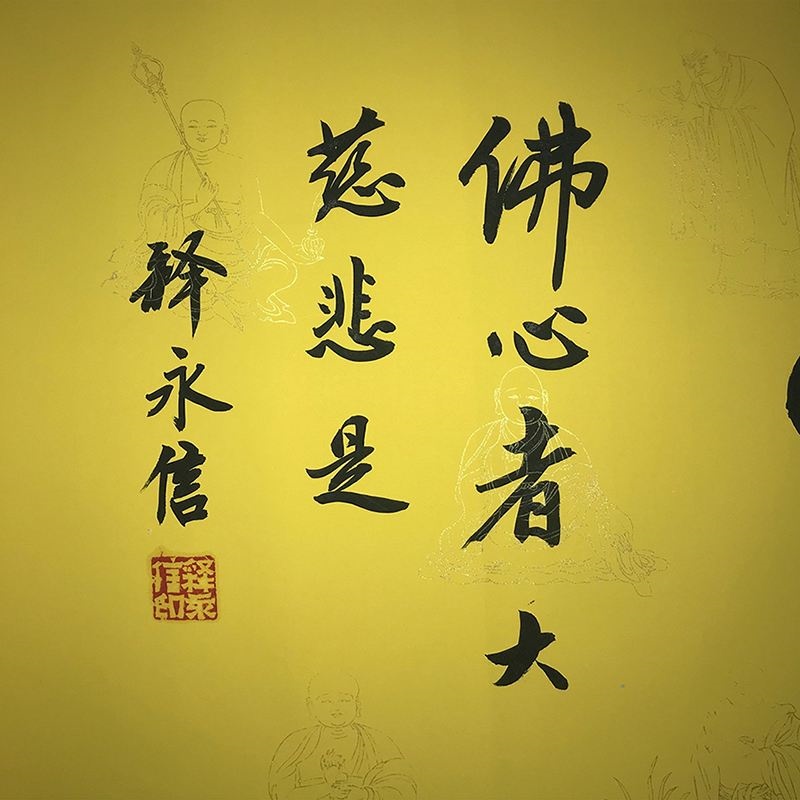 佛心者大
慈悲是
释永信
释永信印